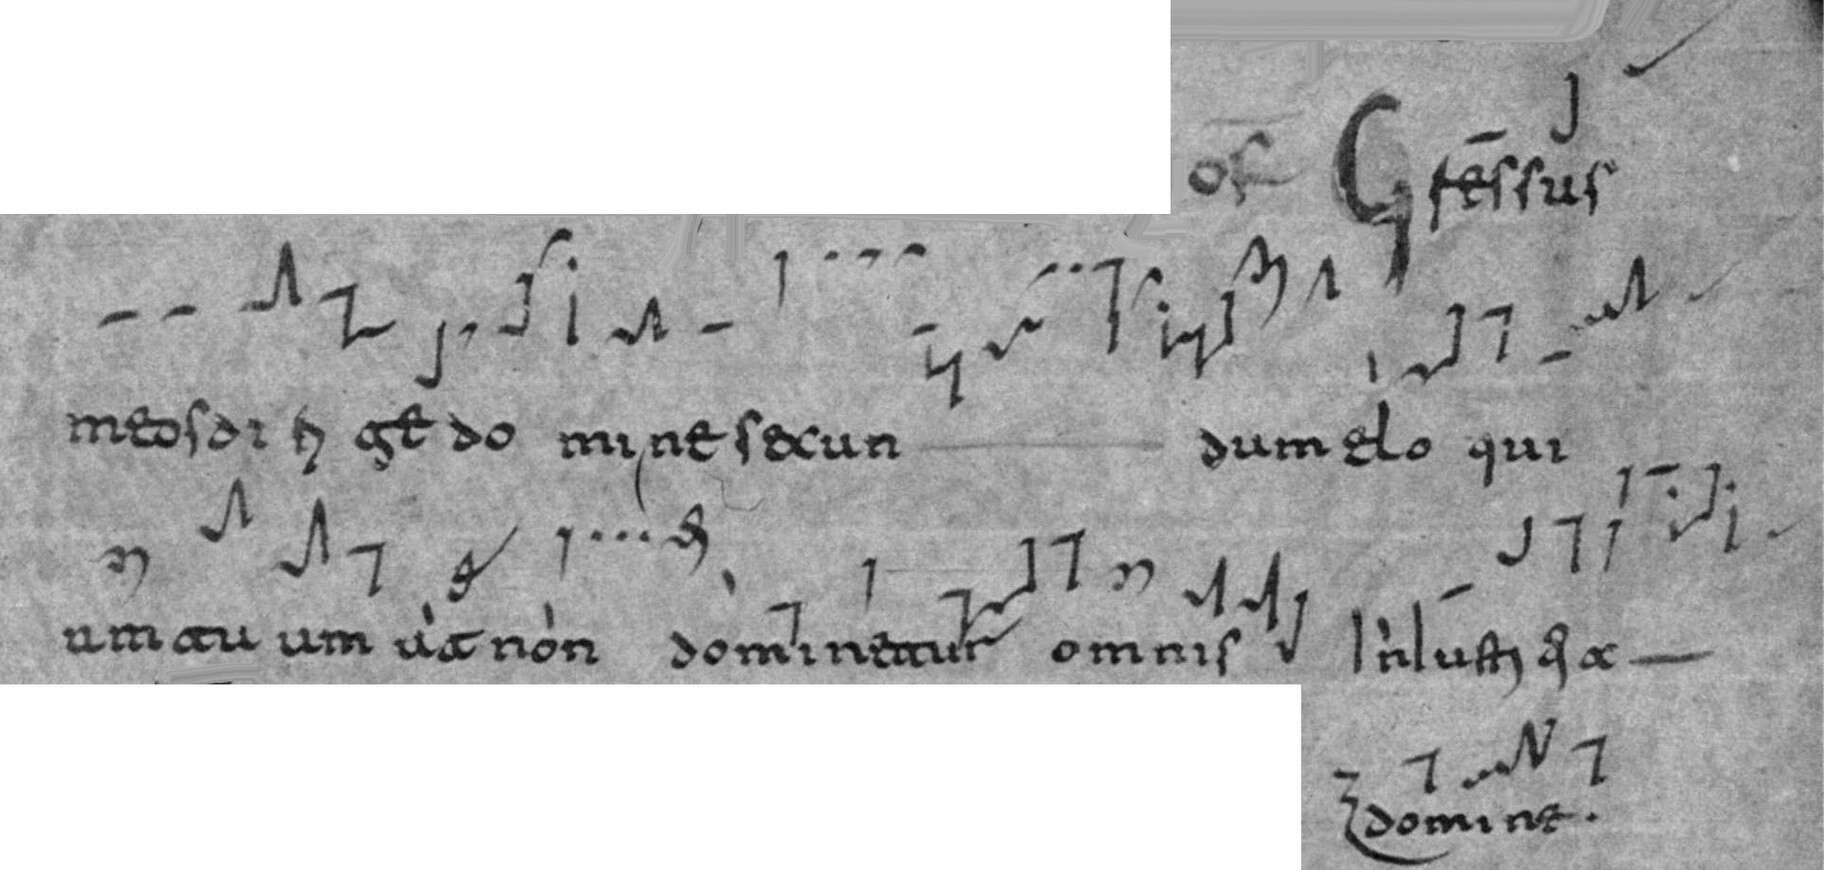 of Gressus
meos diri ge do mine secun dum elo qui
um tu um ut non dominetur omnis iniustitia
domine.